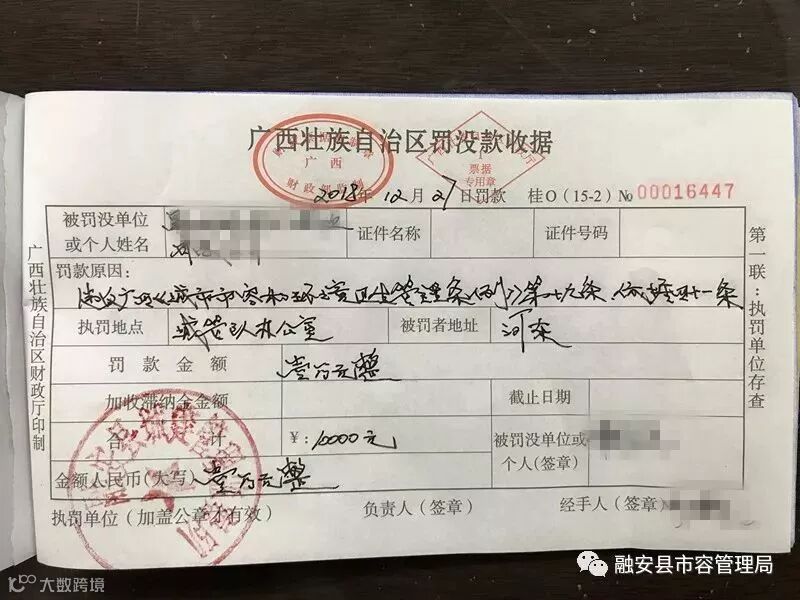 广西壮族自治区罚没款收据
广西
财政部监制
票据
专用章
2018年12月27日罚款 桂O(15-2)№00016447
被罚没单位
或个人姓名
证件名称
证件号码
罚款原因:
违反广西《城市市容和环境卫生管理条例》第十九条,依据四十一条
执罚地点 城管队办公室 被罚者地址 河东
罚款金额 壹万元整
加收滞纳金金额 截止日期
合计 ¥:10000元
被罚没单位或
个人(签章)
金额人民币(大写)壹万元整
执罚单位(加盖公章才有效) 负责人(签章) 经手人(签章)
广西壮族自治区财政厅印制
第一联:执罚单位存查
融安县市容管理局
大数跨境